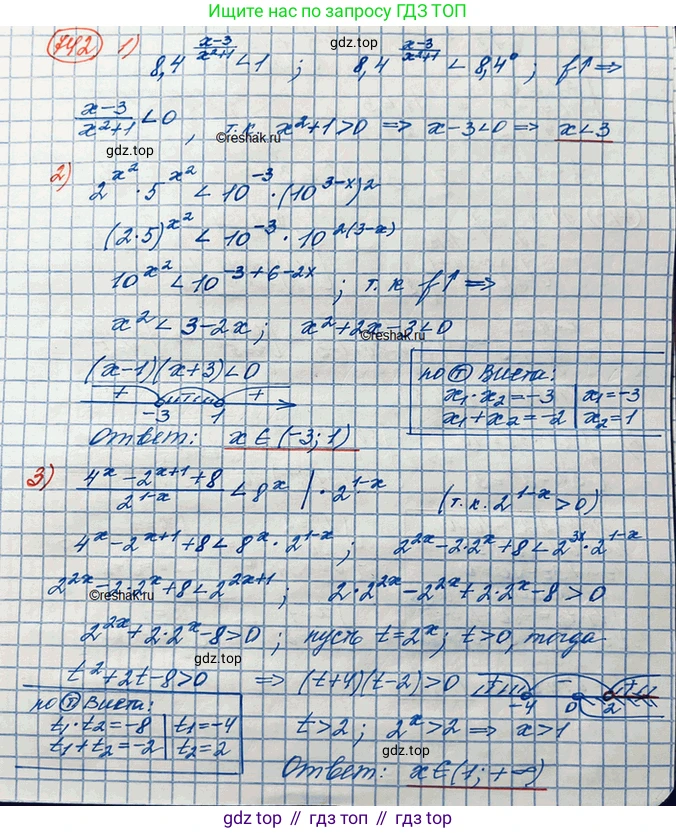 Больше решений по запросу ГДЗ ТОП
742 1) 8,4^((x-3)/(x²+1)) < 1 ; 8,4^((x-3)/(x²+1)) < 8,4⁰ ; f↑ ⇒
gdz.top
(x-3)/(x²+1) < 0 , т.к. x²+1>0 ⇒ x-3<0 ⇒ x<3
©reshak.ru
gdz.top
2) 2^(x²) · 5^(x²) < 10^(-3) · (10^(3-x))²
(2·5)^(x²) < 10^(-3) · 10^(2(3-x))
10^(x²) < 10^(-3+6-2x) ; т.к f↑ ⇒
x² < 3-2x ; x²+2x-3<0
©reshak.ru
(x-1)(x+3)<0
+ - +
-3 1
по Т Виета:
x₁·x₂=-3 | x₁=-3
x₁+x₂=-2 | x₂=1
Ответ: x∈(-3;1)
3) (4^x - 2^(x+1) + 8)/(2^(1-x)) < 8^x | · 2^(1-x) (т.к. 2^(1-x)>0)
gdz.top
4^x - 2^(x+1) + 8 < 8^x · 2^(1-x) ; 2^(2x) - 2·2^x + 8 < 2^(3x) · 2^(1-x)
2^(2x) - 2·2^x + 8 < 2^(2x+1) ; 2·2^(2x) - 2^(2x) + 2·2^x - 8 > 0
©reshak.ru
2^(2x) + 2·2^x - 8 > 0 ; пусть t=2^x ; t>0, тогда
gdz.top
t²+2t-8>0 ⇒ (t+4)(t-2)>0
+ - +
-4 0 2
по Т Виета:
t₁·t₂=-8 | t₁=-4
t₁+t₂=-2 | t₂=2
t>2 ; 2^x>2 ⇒ x>1
gdz.top
Ответ: x∈(1;+∞)
gdz.top // гдз топ // gdz.top